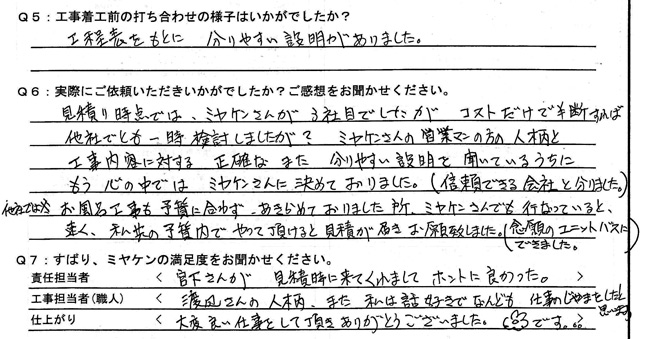 Q5：工事着工前の打ち合わせの様子はいかがでしたか？
工程表をもとに 分りやすい説明がありました。
Q6：実際にご依頼いただきいかがでしたか？ご感想をお聞かせください。
見積り時点では、ミヤケンさんが3社目でしたが コストだけで判断すれば
他社でとも一時検討しましたが？ ミヤケンさんの営業マンの方の人柄と
工事内容に対する 正確な また 分りやすい説明を聞いているうちに
もう 心の中では ミヤケンさんに決めておりました。（信頼できる会社と分りました。）
他社では お風呂工事も予算に合わず、あきらめておりました所、ミヤケンさんでも行なっていると、
私共の予算内でやって頂けると見積が届きお願い致しました。（念願のユニットバスに
できました。）
Q7：ずばり、ミヤケンの満足度をお聞かせください。
責任担当者 ＜ 宮下さんが 見積時に来てくれまして ホントに良かった。 ＞
工事担当者（職人） ＜ さんの人柄、また 私は話好きでなんども 仕事のじゃまをしたと
思います ＞
仕上がり ＜ 大変良い仕事をして頂きありがとうございました。 です。 ＞